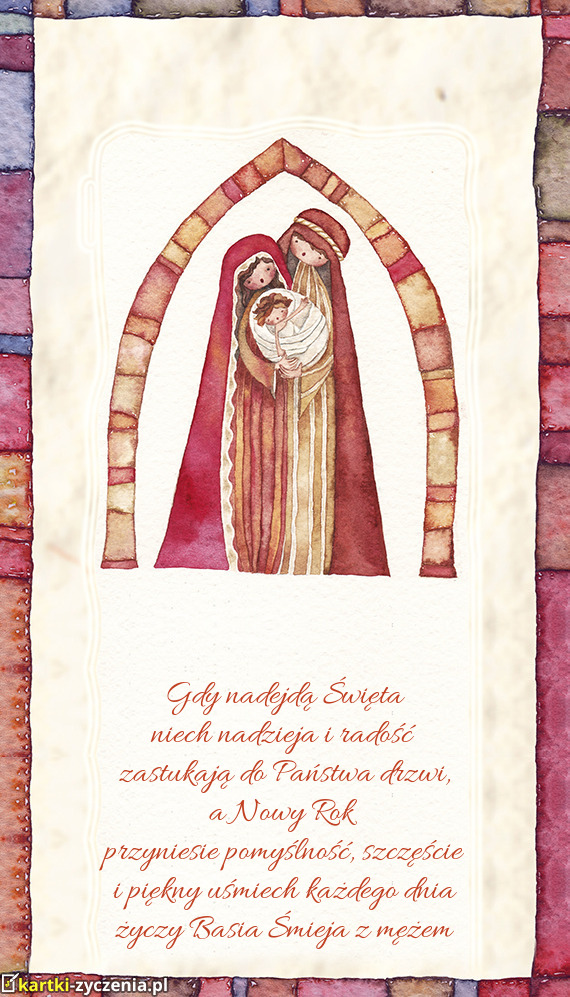 Gdy nadejdą Święta
niech nadzieja i radość
zastukają do Państwa drzwi,
a Nowy Rok
przyniesie pomyślność, szczęście
i piękny uśmiech każdego dnia
życzy Basia Śmieja z mężem
kartki-zyczenia.pl